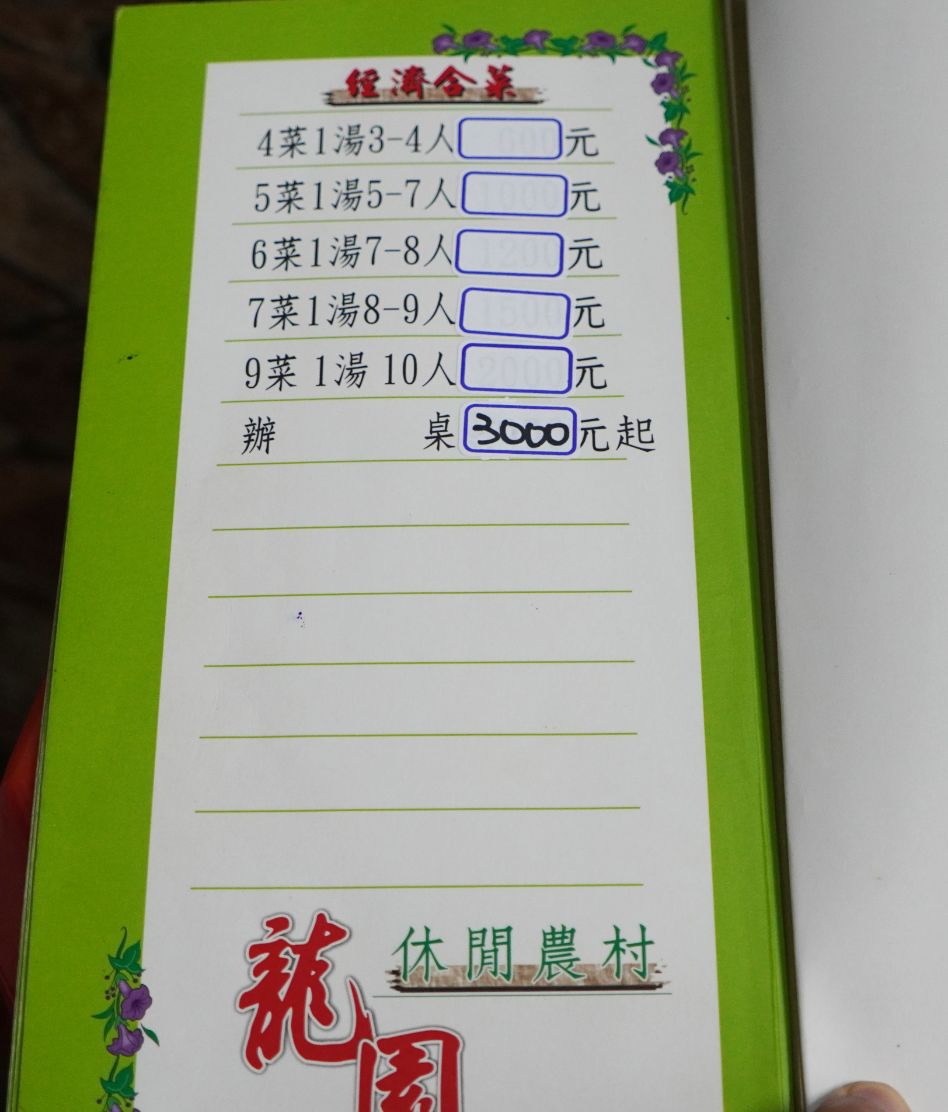 經濟合菜
4菜1湯3-4人 600元
5菜1湯5-7人 1000元
6菜1湯7-8人 1200元
7菜1湯8-9人 1500元
9菜 1湯 10人 2000元
辦 桌 3000元起
休閒農村
龍園